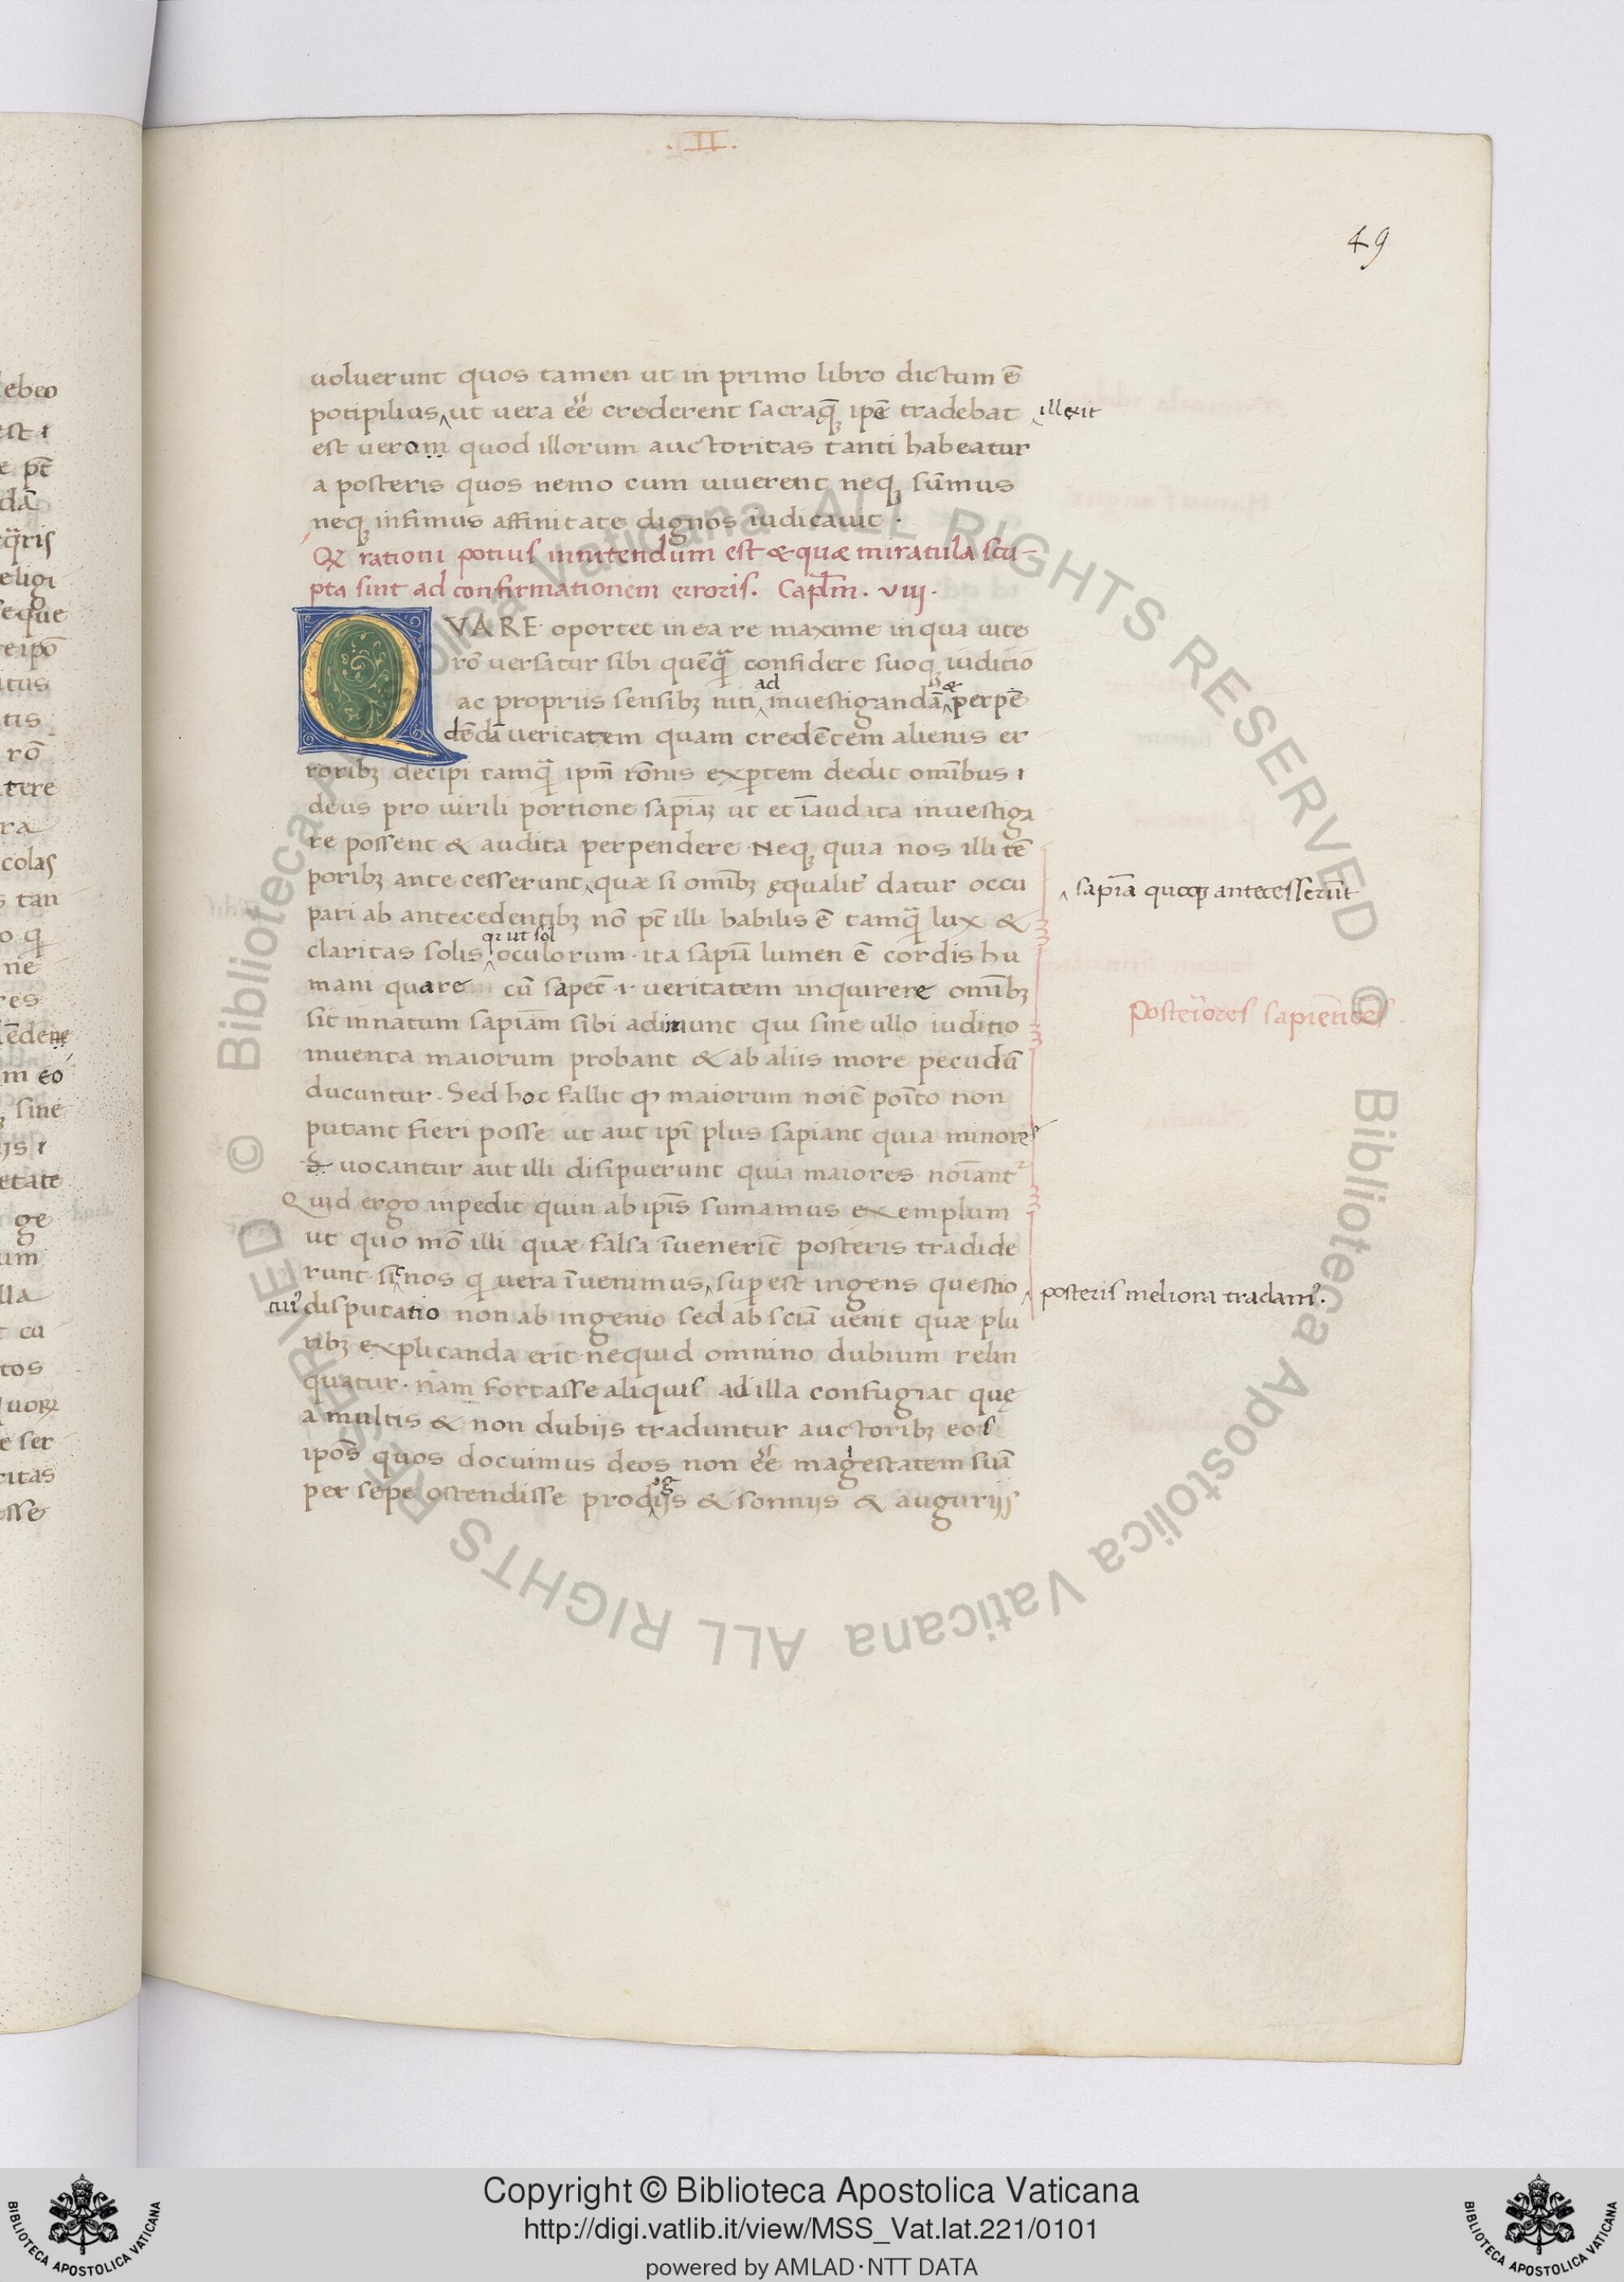 .II.
49
uoluerunt quos tamen ut in primo libro dictum ē
potipilius ut uera eē crederent sacraq; ipē tradebat
illexit
est uerom quod illorum auctoritas tanti habeatur
a posteris quos nemo cum uiuerent neq; sūmus
neq; infimus affinitate dignos iudicauit .
Q̄ rationi potius innitendum est & quæ miracula scu-
pta sint ad confirmationem erroris. Capl̄m. viii.
QVARE oportet in ea re maxime in qua uite
rō uersatur sibi quēq̄ confidere suoq; iuditio
ac propriis sensib; niti ad inuestigandā & perpē
dēdā ueritatem quam credētem alienis er
rorib; decipi tamq̄ ipm̄ rōnis expertem dedit omībus
deus pro uirili portione sapīaȝ ut et īaudata inuestiga
re possent & audita perpendere Neq; quia nos illi tē
porib; ante cesserunt quæ si omīb; equalit̄ datur occu
sapīa quoq; antecesserūt
pari ab antecedentib; nō pt̄ illi babilis ē tamq̄ lux &
claritas solis qr ut sol oculorum . ita sapīa lumen ē cordis hu
mani quare cū sapeē .i. ueritatem inquirere omīb;
sit innatum sapīam sibi adimunt qui sine ullo iuditio
posteriores sapientes
inuenta maiorum probant & ab aliis more pecudū
ducuntur . Sed hoc fallit q maiorum noīe poīto non
putant fieri posse ut aut ipī plus sapiant quia minores
uocantur aut illi disipuerunt quia maiores noīant
Quid ergo inpedit quin ab ipīs sumamus exemplum
ut quo mō illi quæ falsa īuenerīt posteris tradide
runt . sic nos q uera īuenimus, superest ingens questio
posteris meliora tradam.
disputatio non ab ingenio sed ab scīa uenit quæ plu
rib; explicanda erit nequid omnino dubium relin
quatur . nam fortasse aliquis ad illa confugiat quę
a multis & non dubijs traduntur auctorib; eos
ipōs quos docuimus deos non eē magestatem suā
per sepe ostendisse prodigijs & somnijs & augurijs
Copyright © Biblioteca Apostolica Vaticana
http://digi.vatlib.it/view/MSS_Vat.lat.221/0101
powered by AMLAD·NTT DATA
BIBLIOTECA APOSTOLICA VATICANA
BIBLIOTECA APOSTOLICA VATICANA
© Biblioteca Apostolica Vaticana ALL RIGHTS RESERVED
© Biblioteca Apostolica Vaticana ALL RIGHTS RESERVED